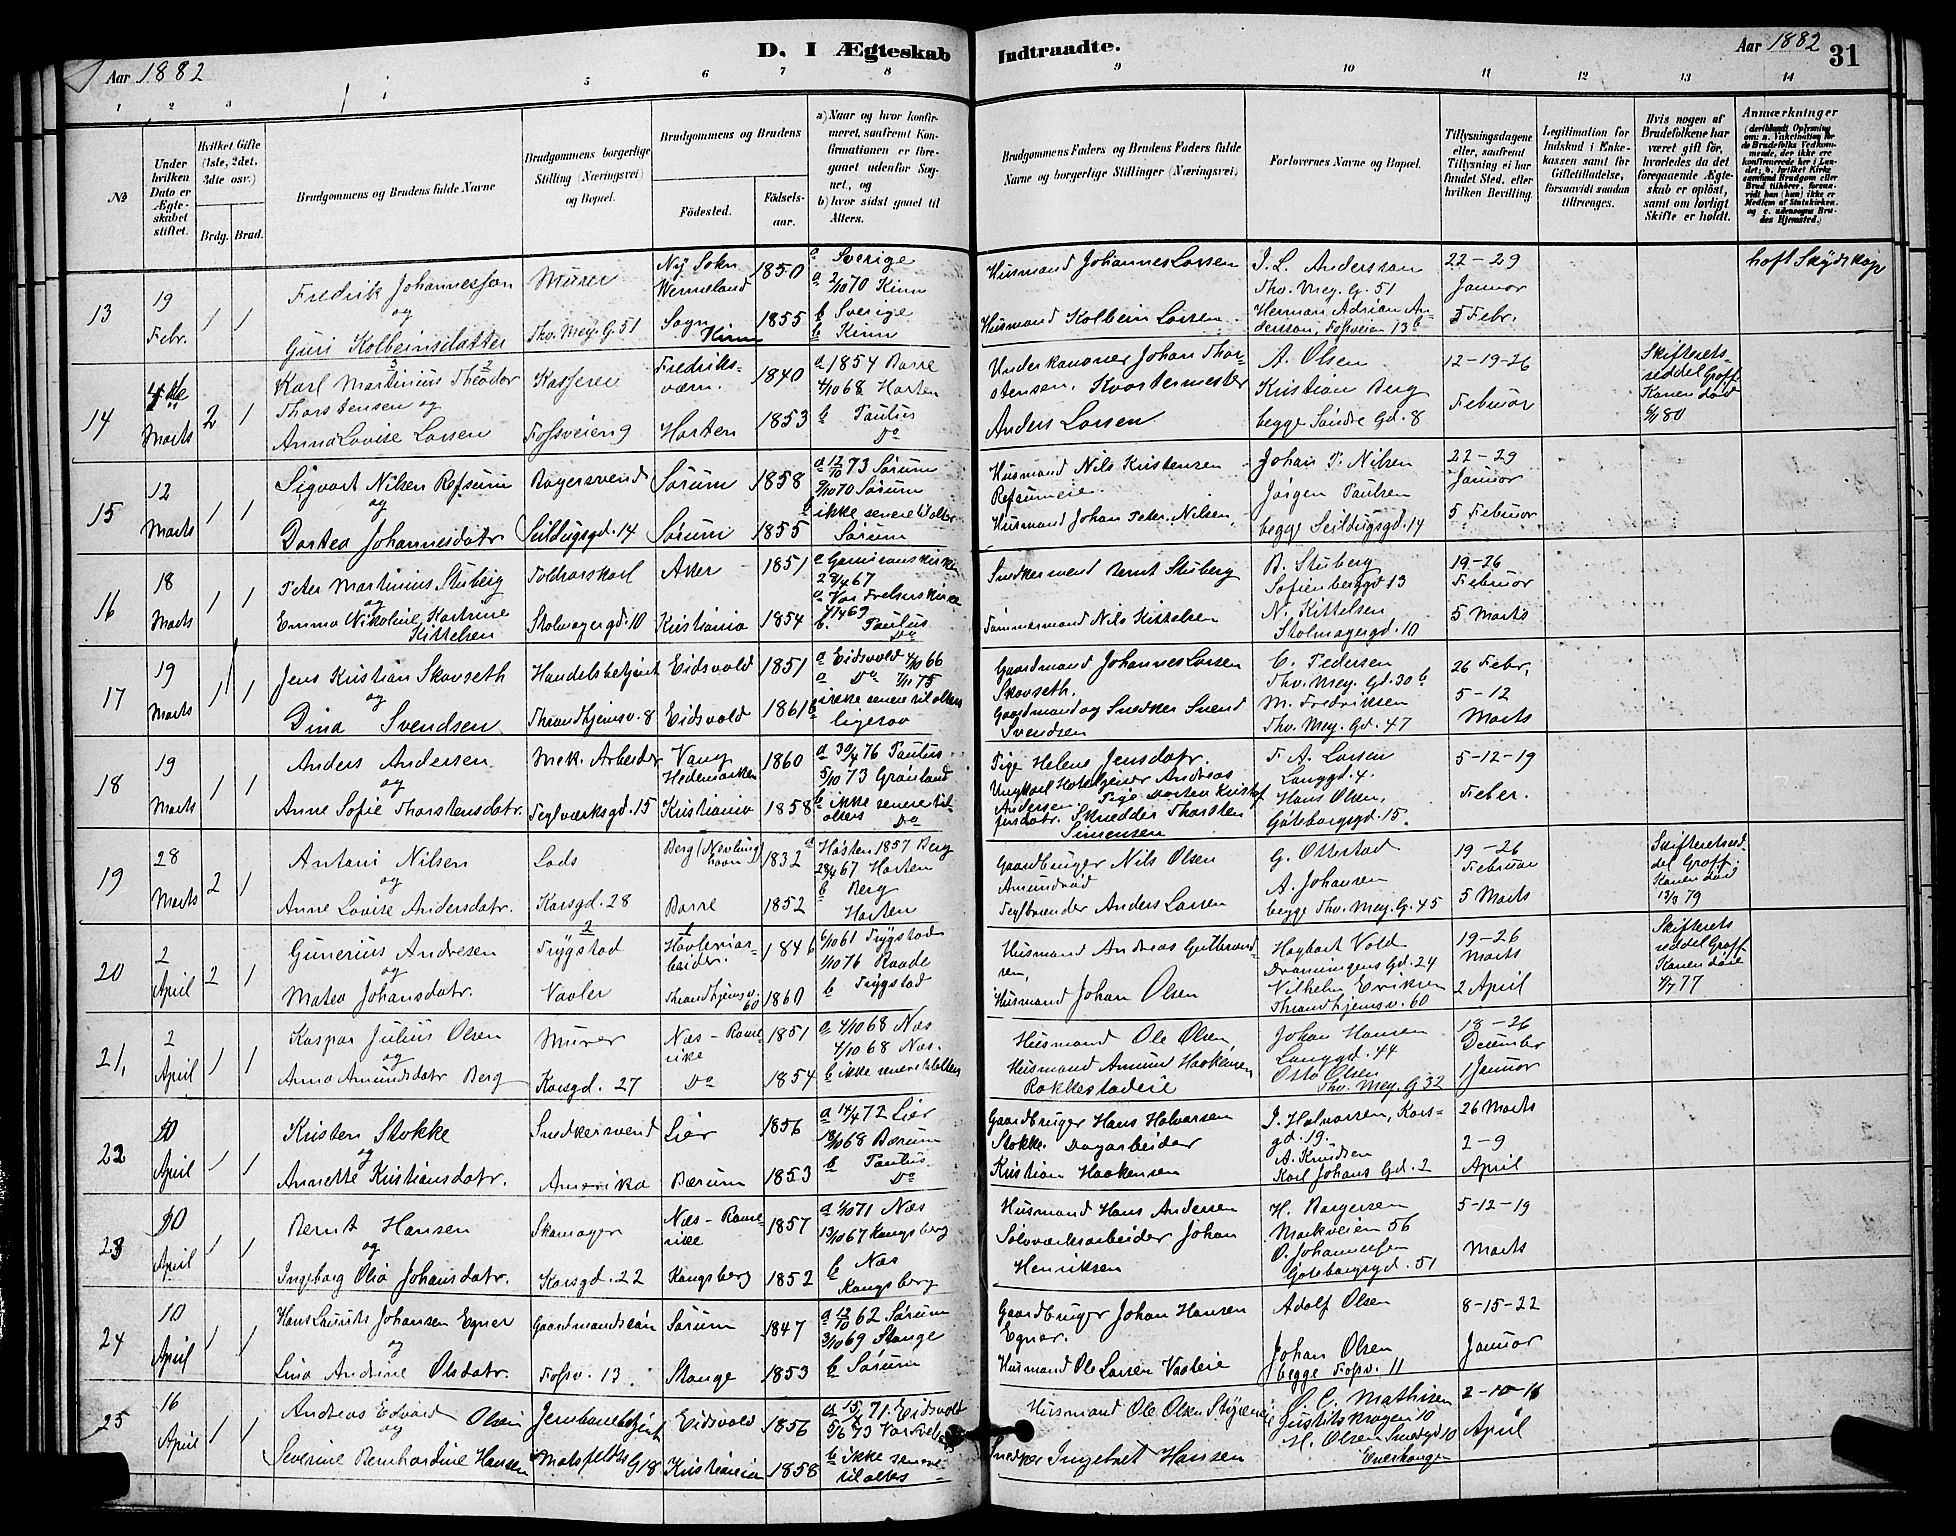 Aar 1882
D. I Ægteskab Indtraadte.
Aar 1882 31
1 2 3 5 6 7 8 9 10 11 12 13 14
No
Under hvilken Dato er Ægteskabet stiftet.
Hvilket Gifte (1ste, 2det, 3die osv.)
Brdg. Brud.
Brudgommens og Brudens fulde Navne
Brudgommens borgerlige Stilling (Næringsvei) og Bopæl.
Brudgommens og Brudens
Födested.
Födselsaar.
a) Naar og hvor konfirmeret, saafremt Konfirmationen er foregaaet udenfor Sognet, og
b) hvor sidst gaaet til Alters.
Brudgommens Faders og Brudens Faders fulde Navne og borgerlige Stillinger (Næringsvei)
Forlovernes Navne og Bopæl.
Tillysningsdagene eller, saafremt Tillysning ei har fundet Sted, efter hvilken Bevilling.
Legitimation for Indskud i Enkekassen samt for Giftetilladelse, forsaavidt saadan tiltrænges.
Hvis nogen af Brudefolkene har været gift för, hvorledes da det foregaaende Ægteskab er oplöst, samt om lovligt Skifte er holdt.
Anmærkninger
13
19 Febr.
1 1
Fredrik Johannessen
og
Guri Kolbeinsdatter
Murer
Thv. Mey. G. 51
Ny Sokn Wermeland 1850
Sogn Kinn 1855
a Sverige
a 2/10 70 Kinn
b Sverige
b Kinn
Husmand Johannes Larsen
Husmand Kolbein Larsen
J. L. Anderssan
Thv. Mey. G. 51
Herman Adrian Andersson, Fossveien 13 b
22-29 Januar
5 Febr.
haft Skydskop
14
Marts
2 1
Karl Martinius Theodor
Thorstensen og
Anna Lovise Larsen
Kasserer
Fossveien 9
Fredriksværn. 1840
Horten 1853
a 1854 Borre
4/10 68 Horten
b Paulus
Do
Underkanoner Johan Thorstensen. Kvartermester
Anders Larsen
A. Olsen
Kristian Berg
begge Søndre Gd. 8
12-19-26
Februar
Skifteretsseddel Groff. Konen död 80
15
12 Marts
1 1
Sigvart Nilsen Refsum
og
Dortea Johannesdatr
Bagersvend
Seildugsgd. 14
Sørum 1858
Sørum 1855
a 12/10 73 Sørum
9/10 70 Sørum
b ikke senere til alter
Sørum
Husmand Nils Kristensen
Refsumeie.
Husmand Johan Peter Nilsen
Johan P. Nilsen
Jørgen Paulsen
begge Seildugsgd. 14
22-29
Januar
5 Februar
16
18 Marts
1 1
Peter Martinius Stuberg
og
Emma Nikoline Katrine
Kittelsen
Stolmagergd. 10
Aker 1851
Kristiania 1854
a Garnisonskirken
28/4 67
a Vor Frelserskirke
b. Paulus
Do
Snedkermand Bernt Stuberg
Tømmermand Nils Kittelsen
B. Stuberg
Sofienberggd 13
N. Kittelsen
Stolmagergd. 10
19-26
Februar
5 Marts
17
19 Marts
1 1
Jens Kristian Skovseth
og
Dina Svendsen
Handelsbetjent
Throndhjemsv. 8
Eidsvold 1851
Eidsvold 1861
a Eidsvold 4/10 66
a Do 7/11 75
b ikke senere til alters
Gaardmand Johannes Larsen
Skovseth.
Gaardmand og Snedker Svend
Svendsen
C. Pedersen
Thv. Mey. Gd. 30 b
M. Fredriksen
Thv. Mey. Gd. 47
26 Febr.
5-12
Marts
18
19 Marts
1 1
Anders Andersen
og
Anne Sofie Thorstensdatr.
Mek. Arbeider
Teglværksgd. 15
Vang Hedemarken 1860
Kristiania 1858
a 30/4 76 Paulus
5/10 73 Grønland
b ikke senere til
alters Do
Pige Helene Jensdatr.
Ungkarl Andreas
Andersen Pige Dorten Kristofersdatr. Skredder Thorsten
Simensen
F. A. Larsen
Langgd. 4.
Hans Olsen,
Göteborgsgd. 15.
5-12-19
Feber.
19
28 Marts
2 1
Antoni Nilsen
og
Anne Lovise Andersdatr.
Lods
Korsgd. 28
Berg (Nevlunghavn) 1832
Borre 1852
a Høsten 1857 Berg
28/4 67 Horten
b Berg
Horten
Gaardbruger Nils Olsen
Amundrød
Teglbrænder Anders Larsen
G. Ottestad
A. Johansen
begge Thv. Mey. G. 45
19-26
Februar
5 Marts
Skifteretseddel Groff. Konen död 13/3 79
20
2 April
2 1
Gunerius Andresen
og
Matea Johansdatr.
Trygstad
Vaaler
Høvleriarbeider.
Throndhjemsv. 60
1846
1860
6/10 61 Trygstad
1/10 76 Raade
b Trygstad
Husmand Andreas Gulbrandsen,
Husmand Johan Olsen
Hagbart Vold
Dronningens Gd. 24
Vilhelm Eriksen
Throndhjemsv. 60
19-26
Marts
2 April
Skifterets seddel Groff. Konen död 77
21,
2 April
1 1
Kaspar Julius Olsen
og
Anna Amundsdatr Berg
Murer
Korsgd. 27
Næs - Romerike 1851
Do 1854
a 4/10 68 Næs
4/10 68 Næs.
b ikke senere til alters
Husmand Ole Olsen
Husmand Amund Haakensen
Rakkestadeie
Johan Hansen
Langgd. 44
Otto Olsen
Thv. Mey. G 32
18-26
December
1 Januar
22
10 April
1 1
Kristen Stokke
og
Annette Kristiansdatr.
Snedkersvend
Amerika
Lier 1856
Bærum 1853
a 14/4 72 Lier
18/10 68 Bærum
b Paulus
Do
Gaardbruger Hans Halvorsen
Stokke. Dagarbeider
Kristian Haakensen
J. Halvorsen, Korsgd. 19.
A. Knudsen
Karl Johans Gd. 2
26 Marts
2-9
April
23
10 April
1 1
Bernt Hansen
og
Ingeborg Olia Johansdatr.
Skomager
Korsgd. 22
Næs - Romerike 1857
Kongsberg 1852
a 1/10 71 Næs
13/10 67 Kongsberg
b Næs
Kongsberg
Husmand Hans Andersen
Sølvværksarbeider Johan
Henriksen
H. Borgersen
Markveien 56
O. Johannesen
Göteborgsgd. 51
5-12-19
Marts
24
10 April
1 1
Hans Laurits Johansen Egner
og
Lina Andrine Olsdatr.
Gaardmandssøn
Fossv. 13
Sørum 1847
Stange 1853
a 12/10 62 Sørum
3/10 69 Stange
b Sørum
Gaardbruger Johan Hansen
Egner.
Husmand Ole Larsen Vasteie
Adolf Olsen
Johan Olsen
begge Fossv. 11
8-15-22
Januar
25
16 April
1 1
Andreas Edvard Olsen
og
Severine Bernhardine Hansen
Jernbanebetjent
Eidsvold 1856
Kristiania 1858
a 15/ 71 Eidsvold
5/6 73 Vor Frelser
b ikke senere
til alters
Husmand Ole Olsen
Snedker Ingebret Hansen
O. C. Mathisen
H. Olsen Smedgd 10
2-10-16
April